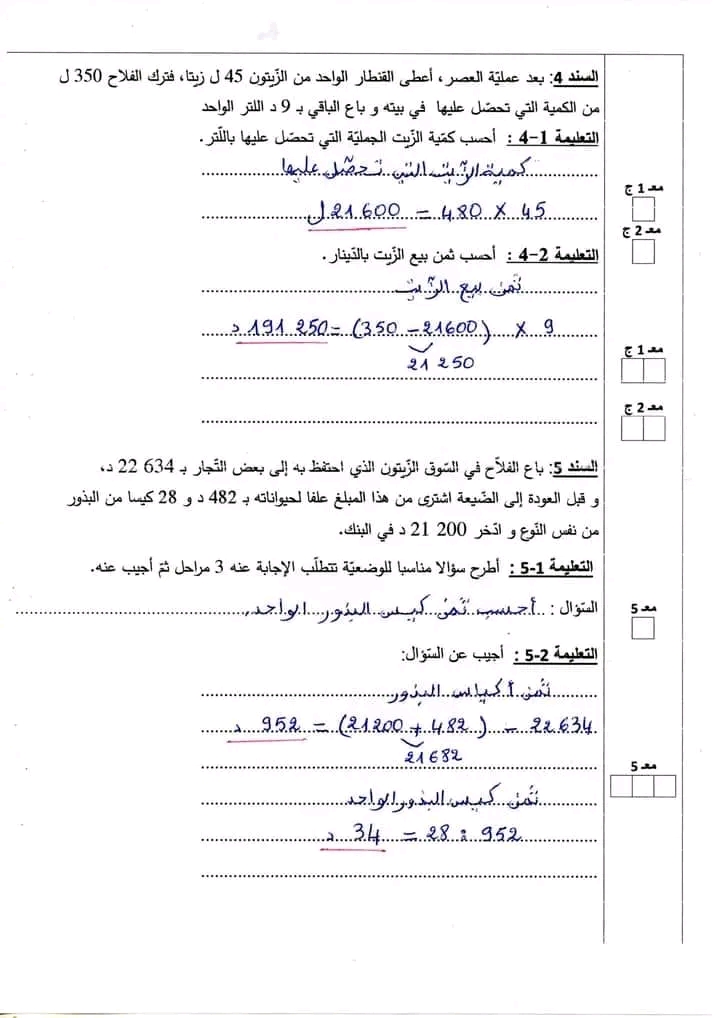 السند 4: بعد عمليّة العصر، أعطى القنطار الواحد من الزّيتون 45 ل زيتا، فترك الفلاح 350 ل
من الكمية التي تحصّل عليها في بيته و باع الباقي بـ 9 د اللتر الواحد
التعليمة 1-4 : أحسب كمّية الزّيت الجمليّة التي تحصّل عليها باللّتر.
كمية الزّيت التي تحصّل عليها
45 × 480 = 21 600 ل
معـ 1 ج
معـ 2 ج
التعليمة 2-4 : أحسب ثمن بيع الزّيت بالدّينار.
ثمن بيع الزّيت
9 × (21600 – 350) = 191 250 د
21 250
معـ 1 ج
معـ 2 ج
السند 5: باع الفلاّح في السّوق الزّيتون الذي احتفظ به إلى بعض التّجار بـ 634 22 د،
و قبل العودة إلى الضّيعة اشترى من هذا المبلغ علفا لحيواناته بـ 482 د و 28 كيسا من البذور
من نفس النّوع و ادّخر 200 21 د في البنك.
التعليمة 1-5 : أطرح سؤالا مناسبا للوضعيّة تتطلّب الإجابة عنه 3 مراحل ثمّ أجيب عنه.
السّؤال : أحسب ثمن كيس البذور الواحد.
معـ 5
التعليمة 2-5 : أجيب عن السّؤال:
ثمن أكياس البذور
22634 – (482 + 21200) = 952 د
21682
معـ 5
ثمن كيس البذور الواحد
952 : 28 = 34 د